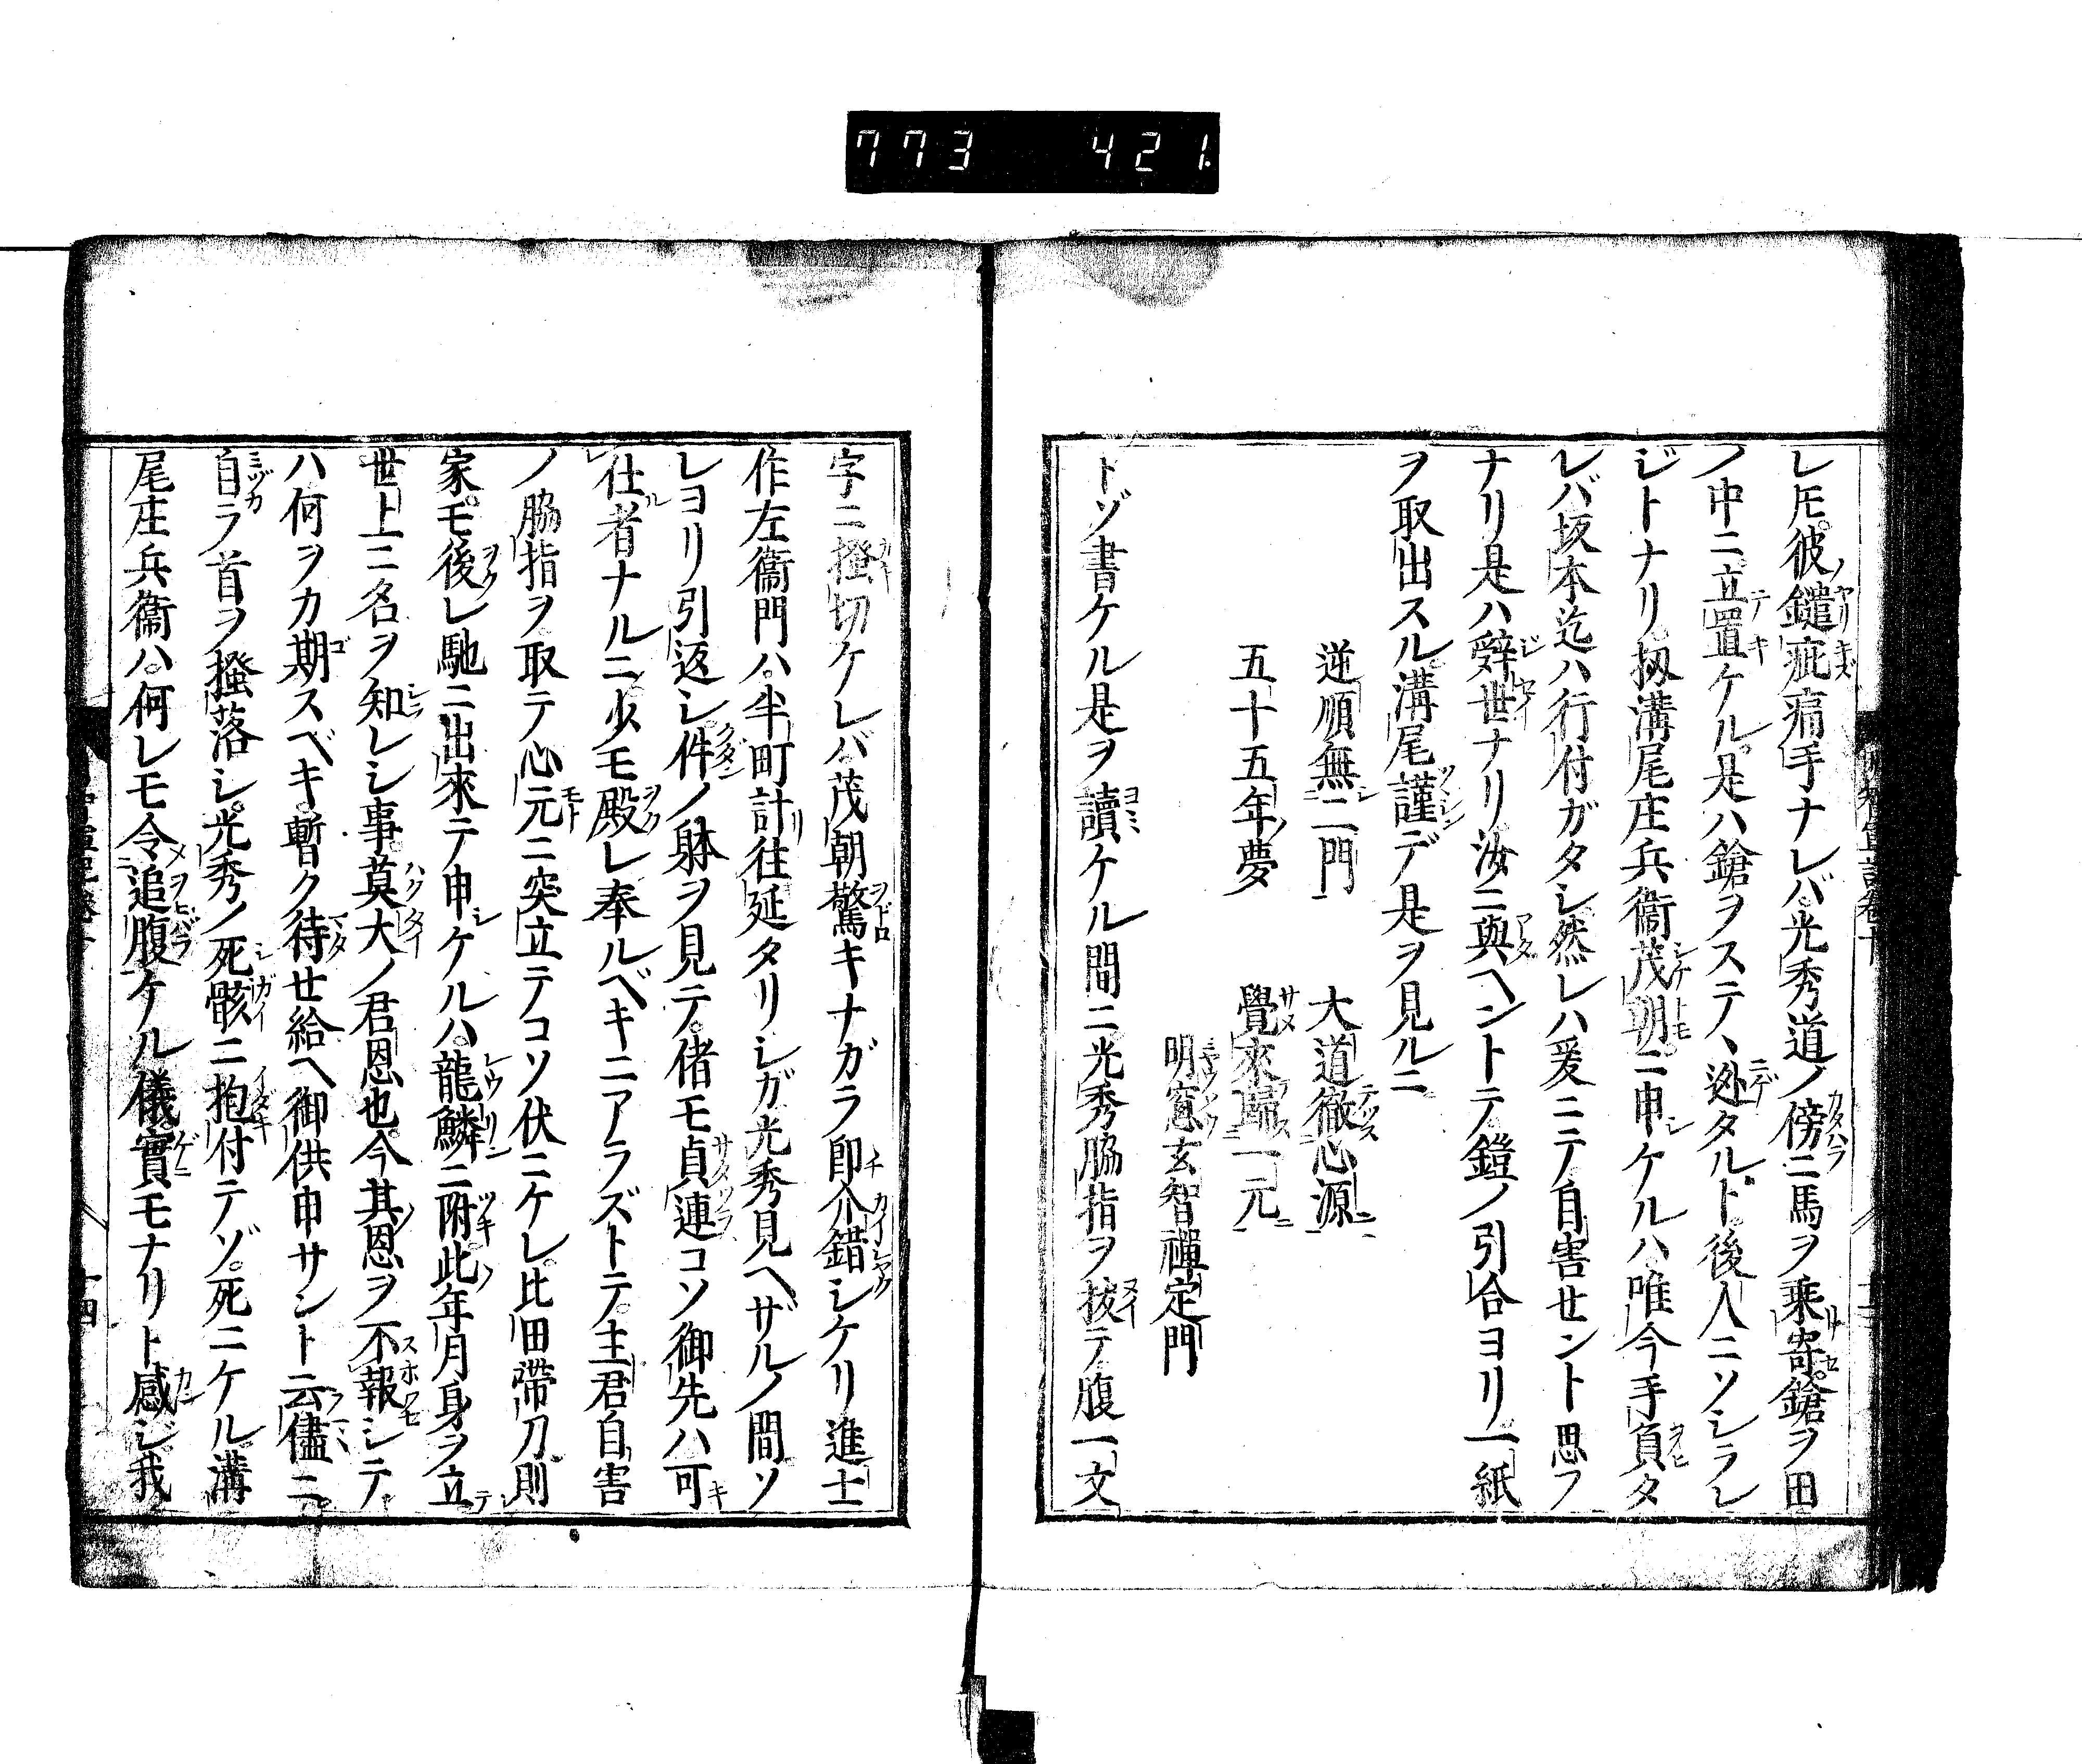 773 421.
レ𪜈彼鑓疵痛手ナレバ光秀道ノ傍ニ馬ヲ乗寄鎗ヲ田
ノ中ニ立置ケル是ハ鎗ヲステヽ迯タルト後人ニソシラレ
ジトナリ扨溝尾庄兵衞茂朝ニ申ケルハ唯今手負タ
レバ坂本迄ハ行付ガタシ然レハ爰ニテ自害セント思フ
ナリ是ハ辭世ナリ汝ニ與ヘントテ鎧ノ引合ヨリ一紙
ヲ取出スル溝尾謹デ是ヲ見ルニ
逆順無二門 大道徹心源
五十五年夢 覺來歸一元
明窓玄智禪定門
トゾ書ケル是ヲ讀ケル間ニ光秀脇指ヲ抜テ腹一文
字ニ撥切ケレバ茂朝驚キナガラ即介錯シケリ進士
作左衞門ハ半町計往延タリシガ光秀見ヘザルノ間ソ
レヨリ引返シ件ノ躰ヲ見テ偖モ貞連コソ御先ハ可
仕者ナルニ少モ殿レ奉ルベキニアラズトテ主君自害
ノ脇指ヲ取テ心元ニ突立テコソ伏ニケレ比田帶刀則
家モ後レ馳ニ出來テ申ケルハ龍鱗ニ附此年月身ヲ立
世上ニ名ヲ知レシ事莫大ノ君恩也今其恩ヲ不報シテ
ハ何ヲカ期スベキ暫ク待せ給ヘ御供申サント云儘ニ
自ラ首ヲ掻落シ光秀ノ死骸ニ抱付テゾ死ニケル溝
尾庄兵衞ハ何レモ令追腹ケル儀實モナリト感ジ我